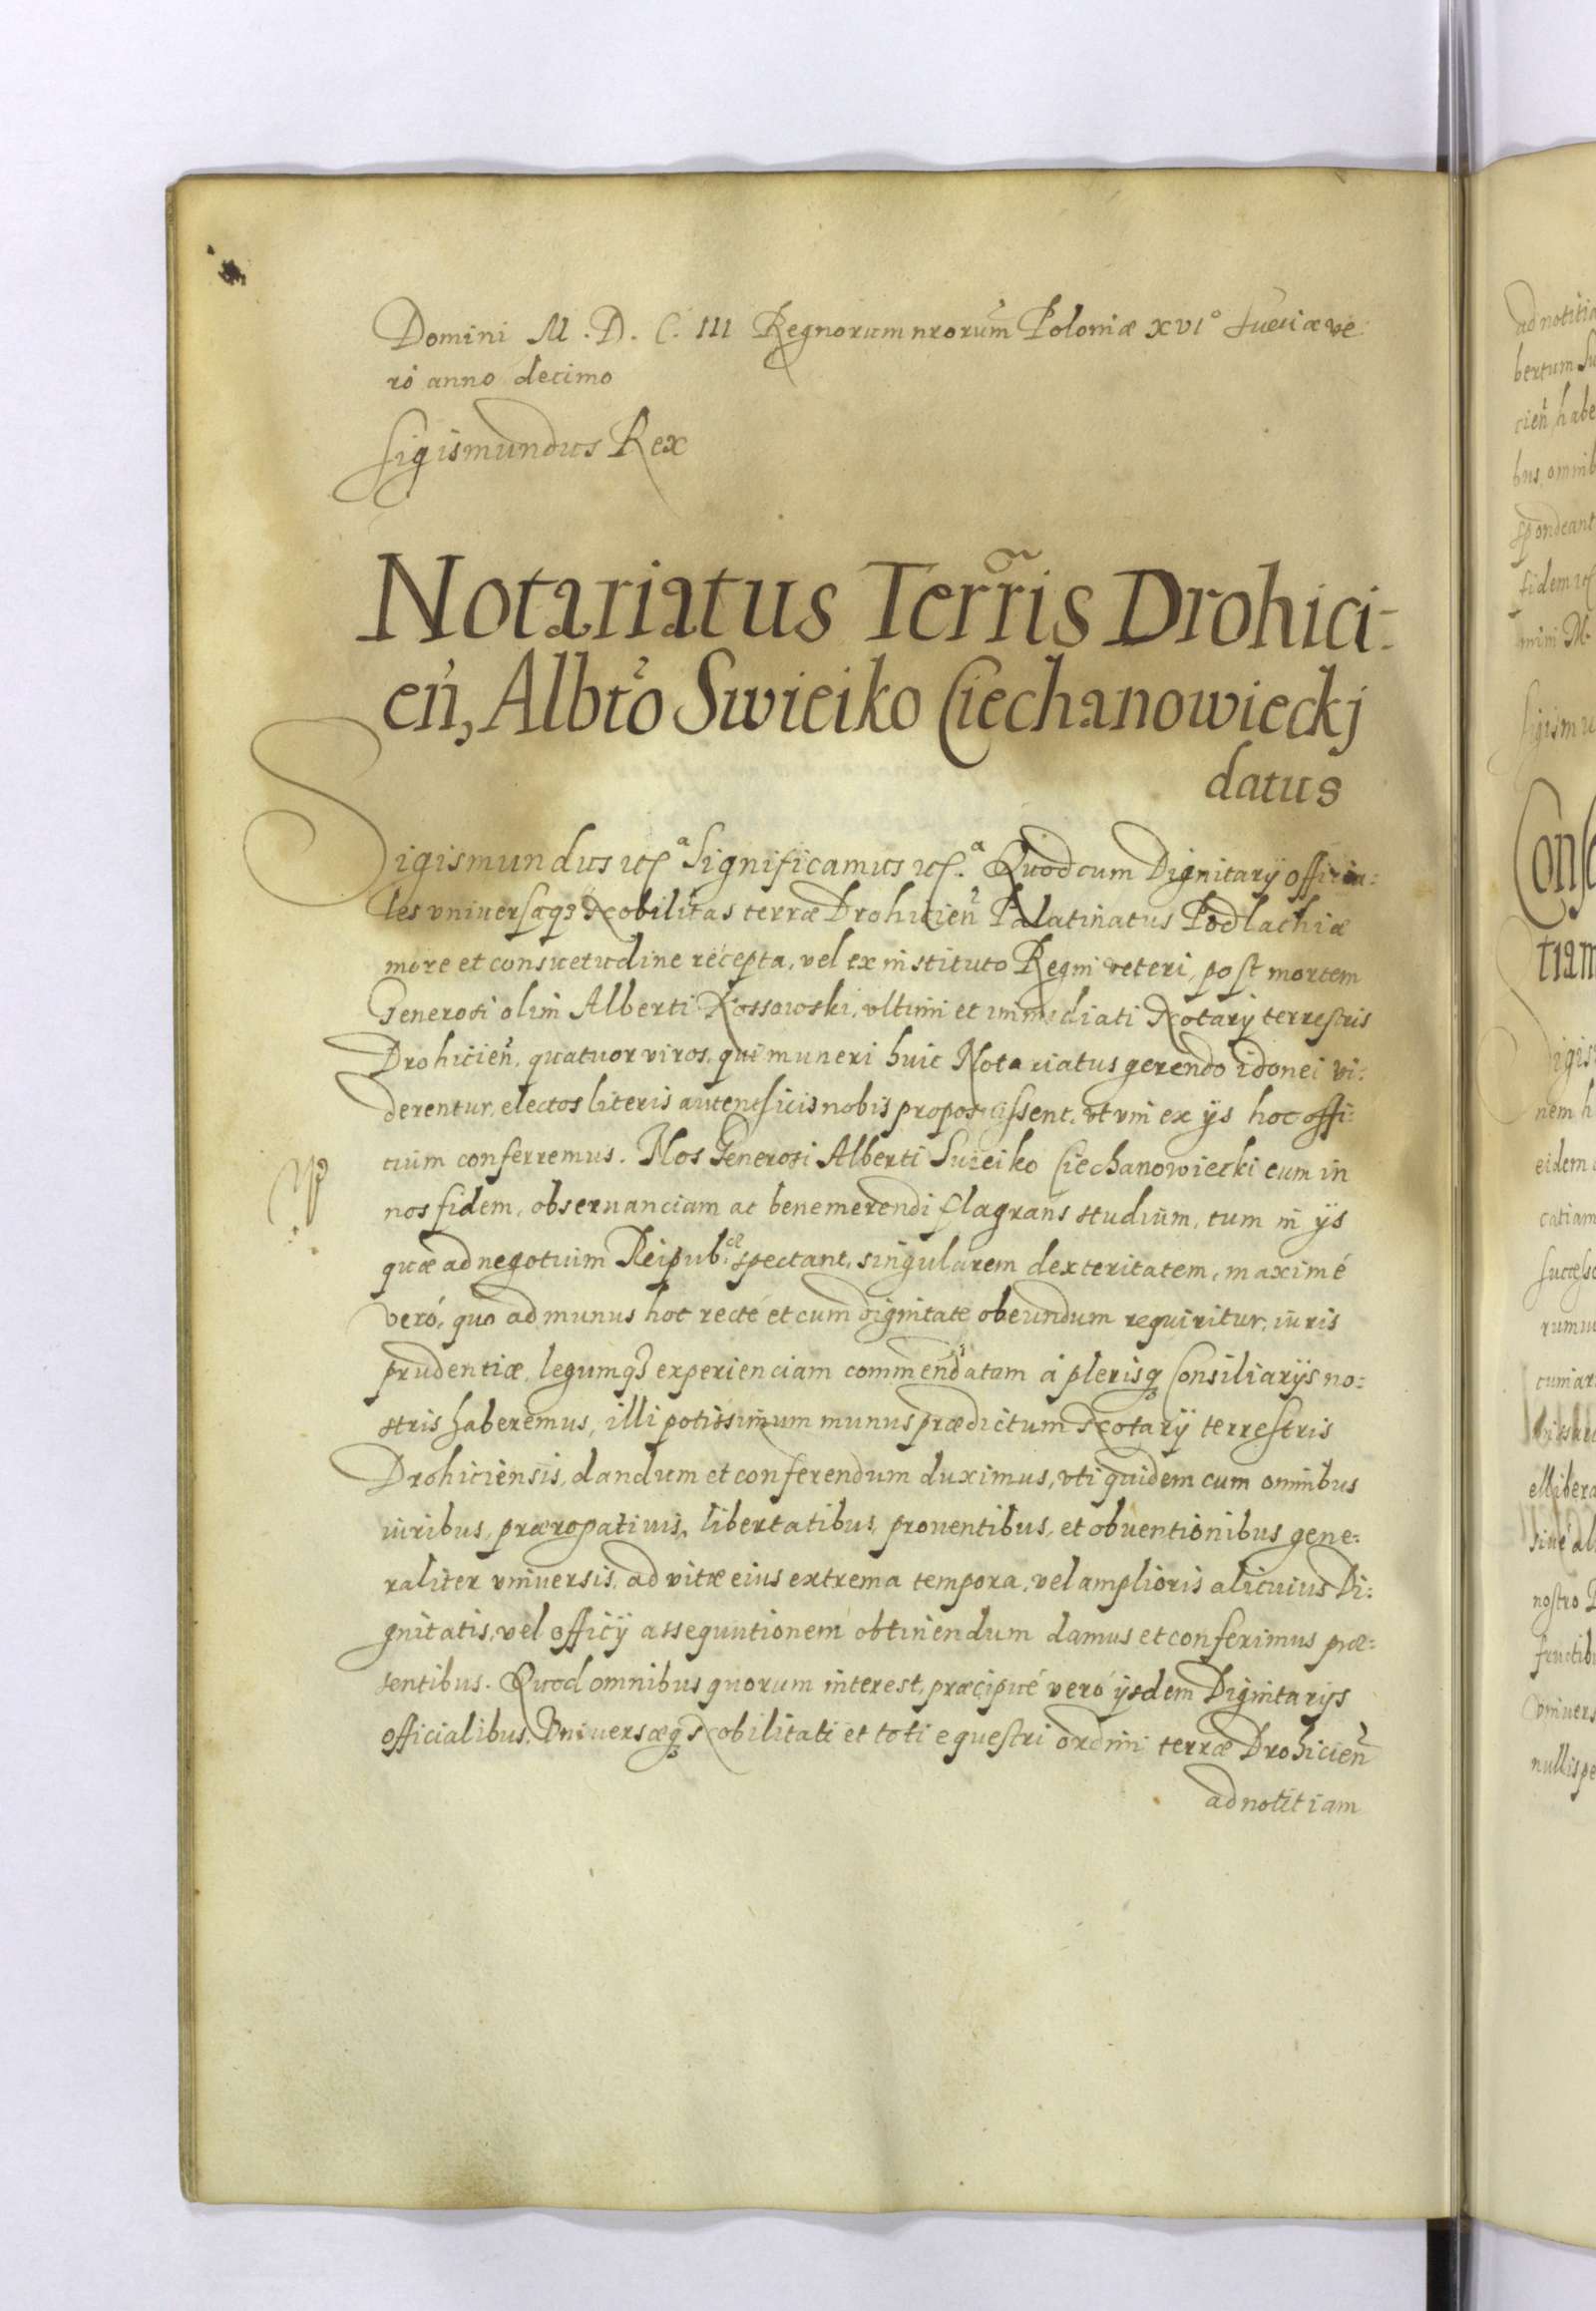 Domini M. D. C. III Regnorum nrorum Poloniæ XVI° Sueciæ ve:
ro anno decimo
Sigismundus Rex
Notariatus Terris Drohici:
en, Albto Swieiko Ciechanowieckj
datus
Sigismundus etc. Significamus etc. Quod cum Dignitarÿ officia:
les vniuersaqȝ Nobilitas terræ Drohicien Palatinatus Podlachiæ
more et consuetudine recepta, vel ex instituto Regni veteri, post mortem
Generosi olim Alberti Kossowski, vltimi et immediati Notarÿ terrestris
Drohicien, quatuor viros, qui muneri huic Notariatus gerendo idonei vi:
derentur, electos literis autenticis nobis proposuissent, vt vni ex ÿs hoc offi:
cium conferremus. Nos Generosi Alberti Swieiko Ciechanowiecki cum in
nos fidem, obseruanciam ac benemerendi flagrans studium, tum in ÿs
quæ ad negotium Reipub:cæ spectant, singularem dexteritatem, maximé
veró, quo ad munus hoc recté et cum dignitate obeundum requiritur, iuris
prudentiæ, legumqȝ experienciam commendatam á plerisqȝ Consiliarÿs no:
stris haberemus, illi potissimum munus prædictum Notarÿ terrestris
Drohiciensis, dandum et conferendum duximus, vti quidem cum omnibus
iuribus, prærogatiuis, libertatibus, prouentibus, et obuentionibus gene:
raliter vniuersis, ad vitæ eius extrema tempora, vel amplioris alicuius Di:
gnitatis, vel officÿ assequutionem obtinendum damus et conferimus præ:
sentibus. Quod omnibus quorum interest, præcipué veró ÿsdem Dignitarÿs
officialibus, Vniuersæqȝ Nobilitati et toti equestri ordini terræ Drohicien
ad notitiam